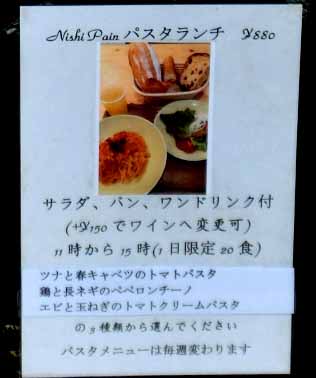 Nishi Pain パスタランチ ¥880
サラダ、パン、ワンドリンク付
(+¥150でワインへ変更可)
11時から15時(1日限定20食)
ツナと春キャベツのトマトパスタ
鶏と長ネギのペペロンチーノ
エビと玉ねぎのトマトクリームパスタ
の3種類から選んでください
パスタメニューは毎週変わります